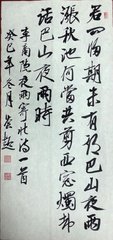 君問歸期未有期巴山夜雨
漲秋池何當共剪西窗燭却
話巴山夜雨時
李商隱夜雨寄北詩一首
癸巳年冬月